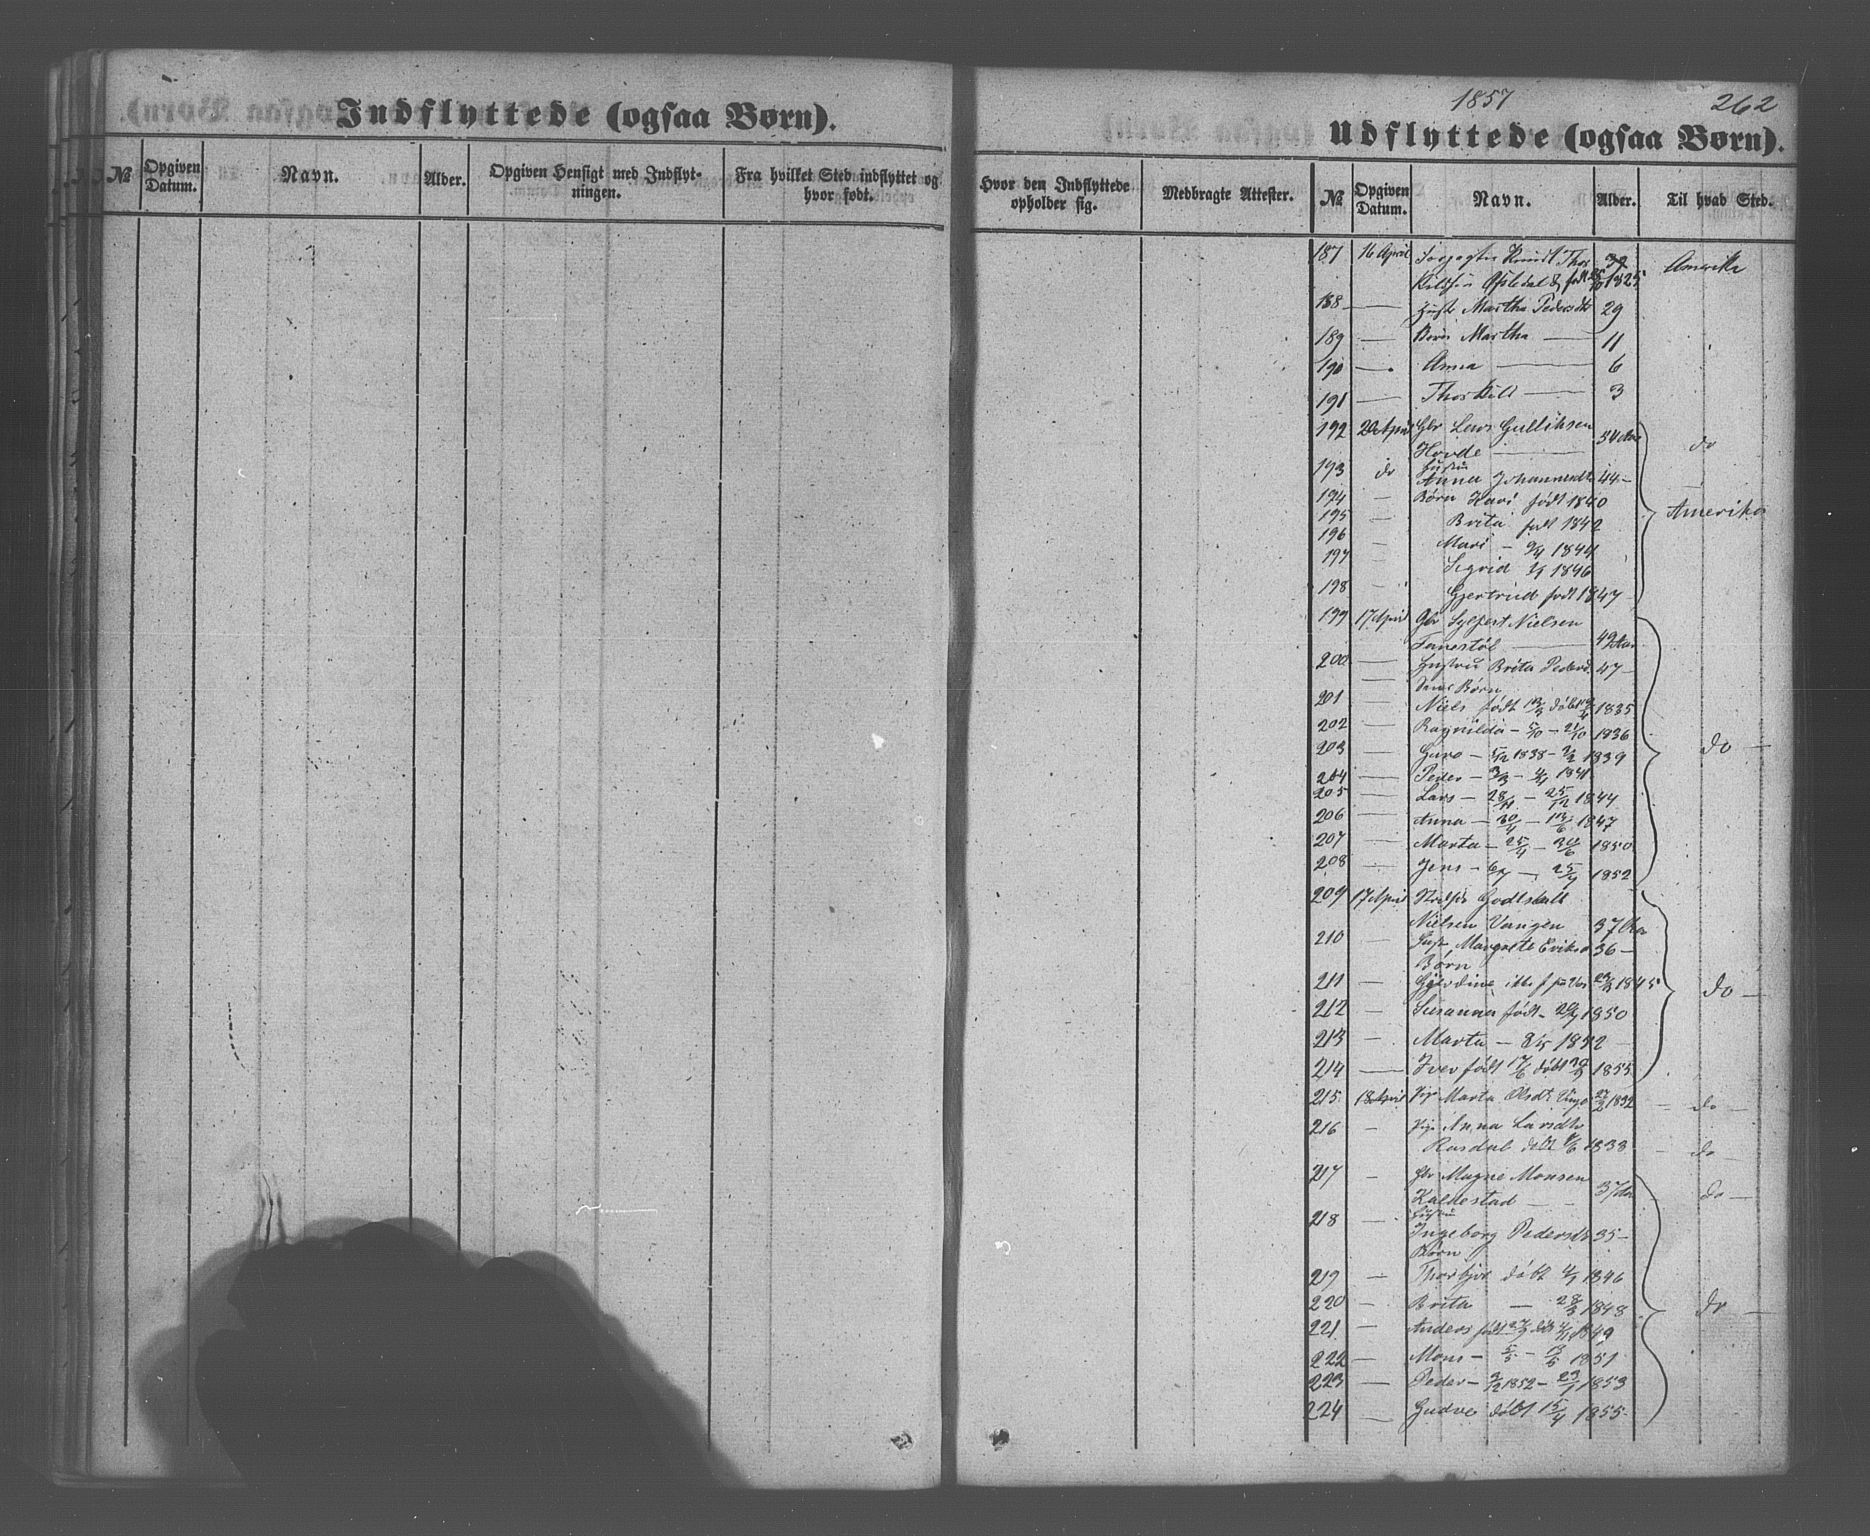 Indflyttede (ogsaa Børn).
№ Opgiven Datum. Navn. Alder. Opgiven Hensigt med Indflytningen. Fra hvilket Sted indflyttet og hvor født.
1857 262
Udflyttede (ogsaa Børn).
Hvor den Indflyttede opholder sig. Medbragte Attester. № Opgiven Datum. Navn. Alder. Til hvad Sted.
187 16 April Knud Thor 32 Amerika
født 1825
188 — Hust Martha Pedersdtr 29
189 — Børn Martha — 11
190 — Anna — 6
191 — Thorkild — 3
192 20 April Gbr Lars Gulliksen
Hovde — 54 Aar do
193 do Hustru
Anna Johannesdtr 44 —
194 — Børn Kari født 1840 Amerika
195 — Brita født 1842
196 — Mari — 1844
197 — Sigrid 1846
198 — Gjertrud født 1847 —
199 17 April Gbr Sylfest Nielsen
— 49 Aar
200 — Hustru Brita Pedersd. 47 —
Børn
201 — Niels født døbt 1835
202 — Ragnilda — 5/10 — 21/10 1836
203 — Guro — 5/12 1838 — 2/2 1839 do —
204 — Peder — 3/3 — 4/4 1841
205 — Lars — 28/11 — 25/12 1844
206 — Anna — 30/4 — 13/6 1847
207 — Marta — 25/4 — 30/6 1850
208 — Jens — — 25/4 1852
209 17 April Godtskalk
Nielsen Vangen 37 Aar
210 — Hust Margrete Eriksd 36 —
Børn
211 — 1845 do —
212 — Susanna født 1850
213 — Marta — 1852 —
214 — Iver født 17/6 døbt 1855
215 18 April Pige Marta Olsdtr 1832 — do —
216 — Pige Anna Larsdtr
Rasdal døbt 1838 — do —
217 — Gbr Magne Monsen
Kaldestad — — 37 Aar do —
218 — Hustru
Ingeborg Pedersdtr 35 —
Børn
219 — Thorbjør døbt 1846
220 — Brita — 28/3 1848 do —
221 — Anders født 1849
222 — Mons — 5/5 — 1851
223 — Peder — 1852 — 23/1 1853
224 — Gudve døbt 15/4 1855